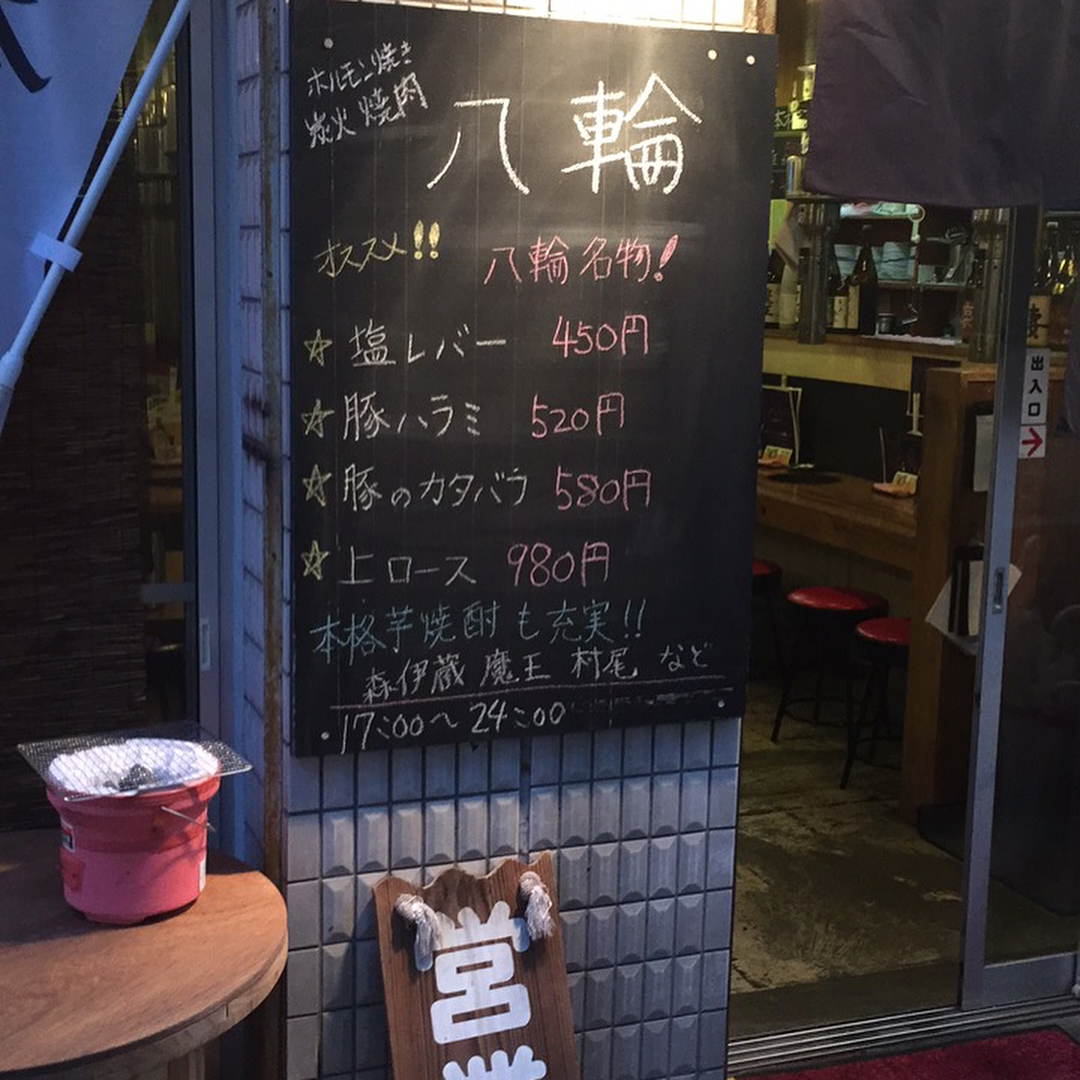 ホルモン焼き
炭火焼肉
八輪
オススメ!!
八輪名物!
☆塩レバー 450円
☆豚ハラミ 520円
☆豚のカタバラ 580円
☆上ロース 980円
本格芋焼酎も充実!!
森伊蔵 魔王 村尾 など
17:00〜24:00
出入口
営業